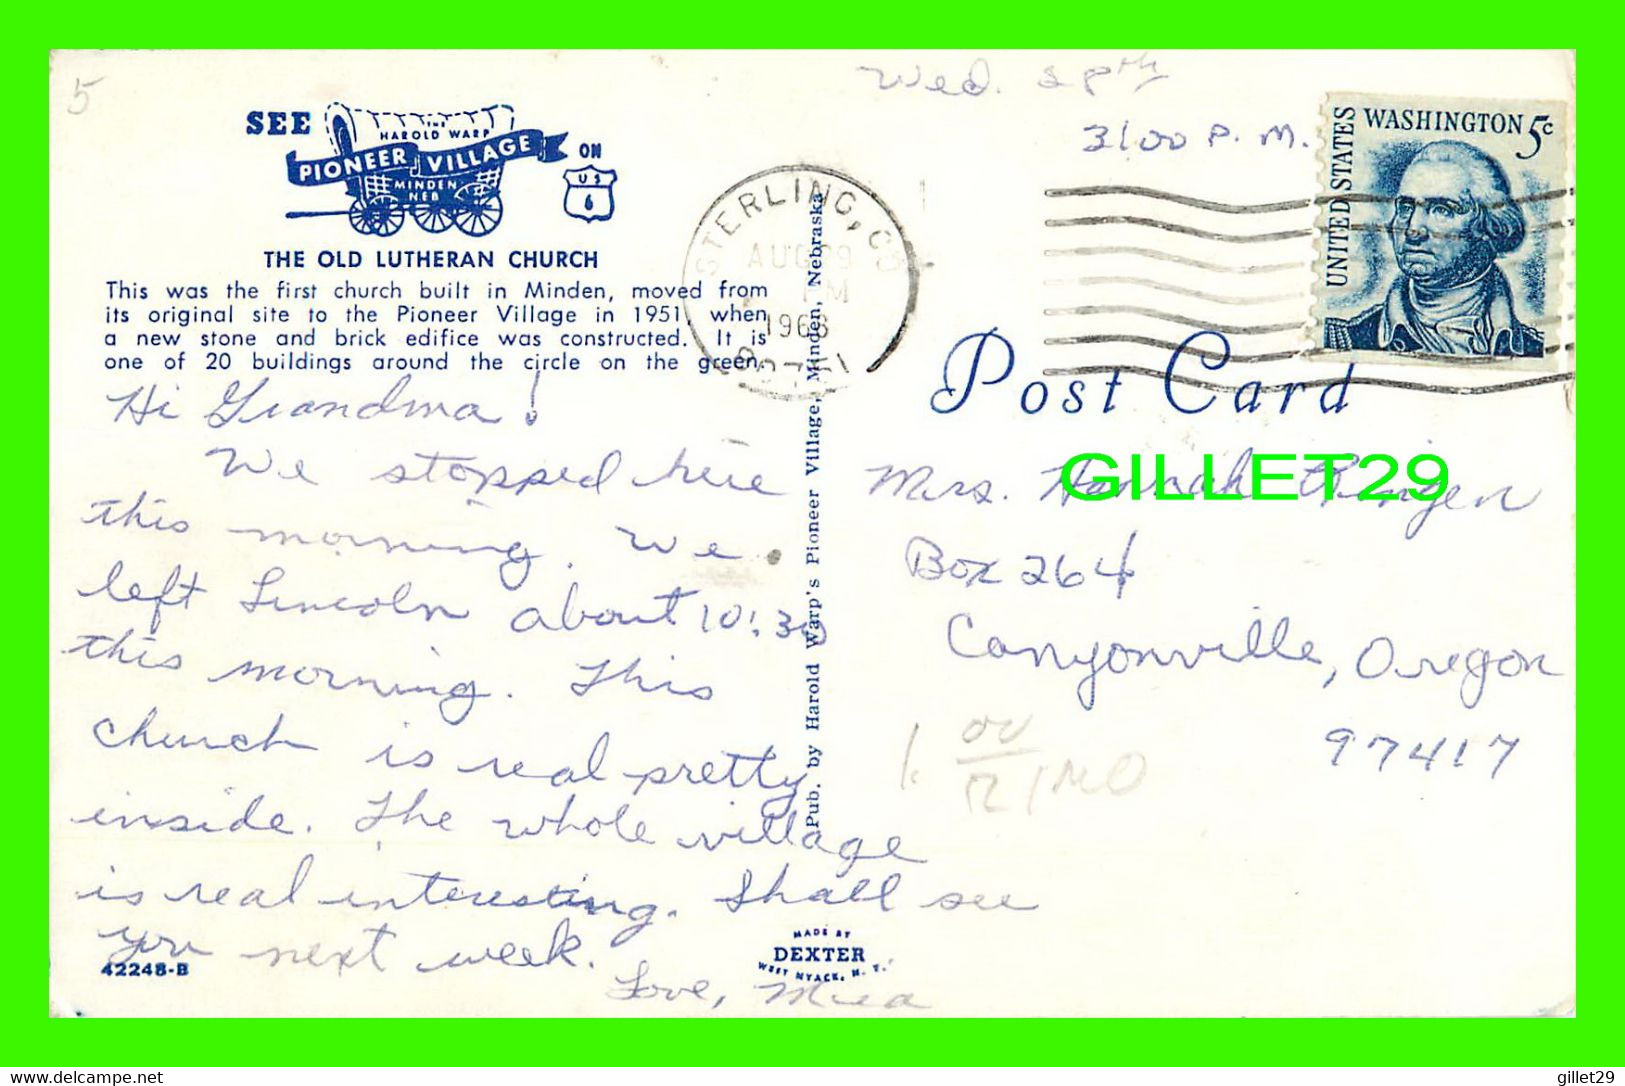 5
SEE
THE
HAROLD WARP
PIONEER VILLAGE
MINDEN
NEB
ON
US
6
THE OLD LUTHERAN CHURCH
This was the first church built in Minden, moved from
its original site to the Pioneer Village in 1951, when
a new stone and brick edifice was constructed. It is
one of 20 buildings around the circle on the green.
Hi Grandma!
We stopped here
this morning. We
left Lincoln about 10:30
this morning. This
church is real pretty
inside. The whole village
is real interesting. Shall see
you next week.
Love,
42248-B
MADE BY
DEXTER
WEST NYACK, N. Y.
Pub. by Harold Warp's Pioneer Village, Minden, Nebraska
STERLING, CO
AUG 29
PM
1968
Wed. 28th
3:00 P.M.
UNITED STATES
WASHINGTON 5c
Post Card
GILLET29
Mrs. Hannah
Box 264
Canyonville, Oregon
97417
gillet29